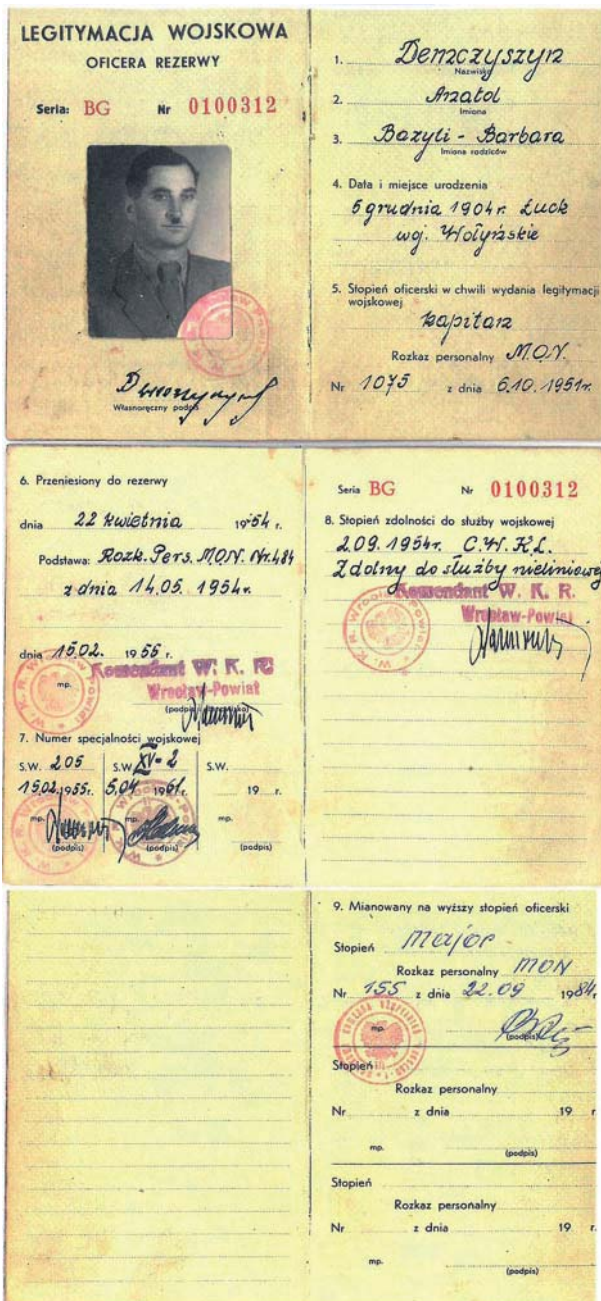 LEGITYMACJA WOJSKOWA
OFICERA REZERWY
Seria: BG Nr 0100312
Własnoręczny podpis
1. Demczyszyn
Nazwisko
2. Anatol
Imiona
3. Bazyli - Barbara
Imiona rodziców
4. Data i miejsce urodzenia
5 grudnia 1904r. Łuck
woj. Wołyńskie
5. Stopień oficerski w chwili wydania legitymacji
wojskowej
kapitan
Rozkaz personalny M.O.N.
Nr 1075 z dnia 6.10.1951r.
6. Przeniesiony do rezerwy
dnia 22 kwietnia 1954 r.
Podstawa: Rozk. Pers. M.O.N. Nr. 484
z dnia 14.05.1954r.
dnia 15.02. 1955 r.
mp. Komendant W. K. R.
Wrocław-Powiat
7. Numer specjalności wojskowej
S.W. 205 S.W. XV-2 S.W.
15.02.1955r. 5.04 1961 r. 19 r.
mp. mp. mp.
(podpis) (podpis) (podpis)
Seria BG Nr 0100312
8. Stopień zdolności do służby wojskowej
2.09.1954r. C.W.K.L.
Zdolny do służby nieliniowej
Komendant W. K. R.
Wrocław-Powiat
9. Mianowany na wyższy stopień oficerski
Stopień Major
Rozkaz personalny MON
Nr 155 z dnia 22.09 1984r.
mp. (podpis)
Stopień
Rozkaz personalny
Nr z dnia 19 r.
mp.
(podpis)
Stopień
Rozkaz personalny
Nr z dnia 19 r.
mp.
(podpis)